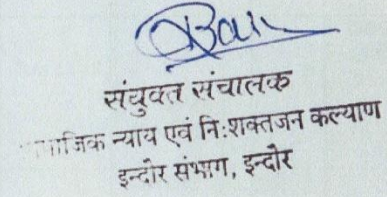 संयुक्त संचालक
माजिक न्याय एवं निःशक्तजन कल्याण
इन्दौर संभाग, इन्दौर